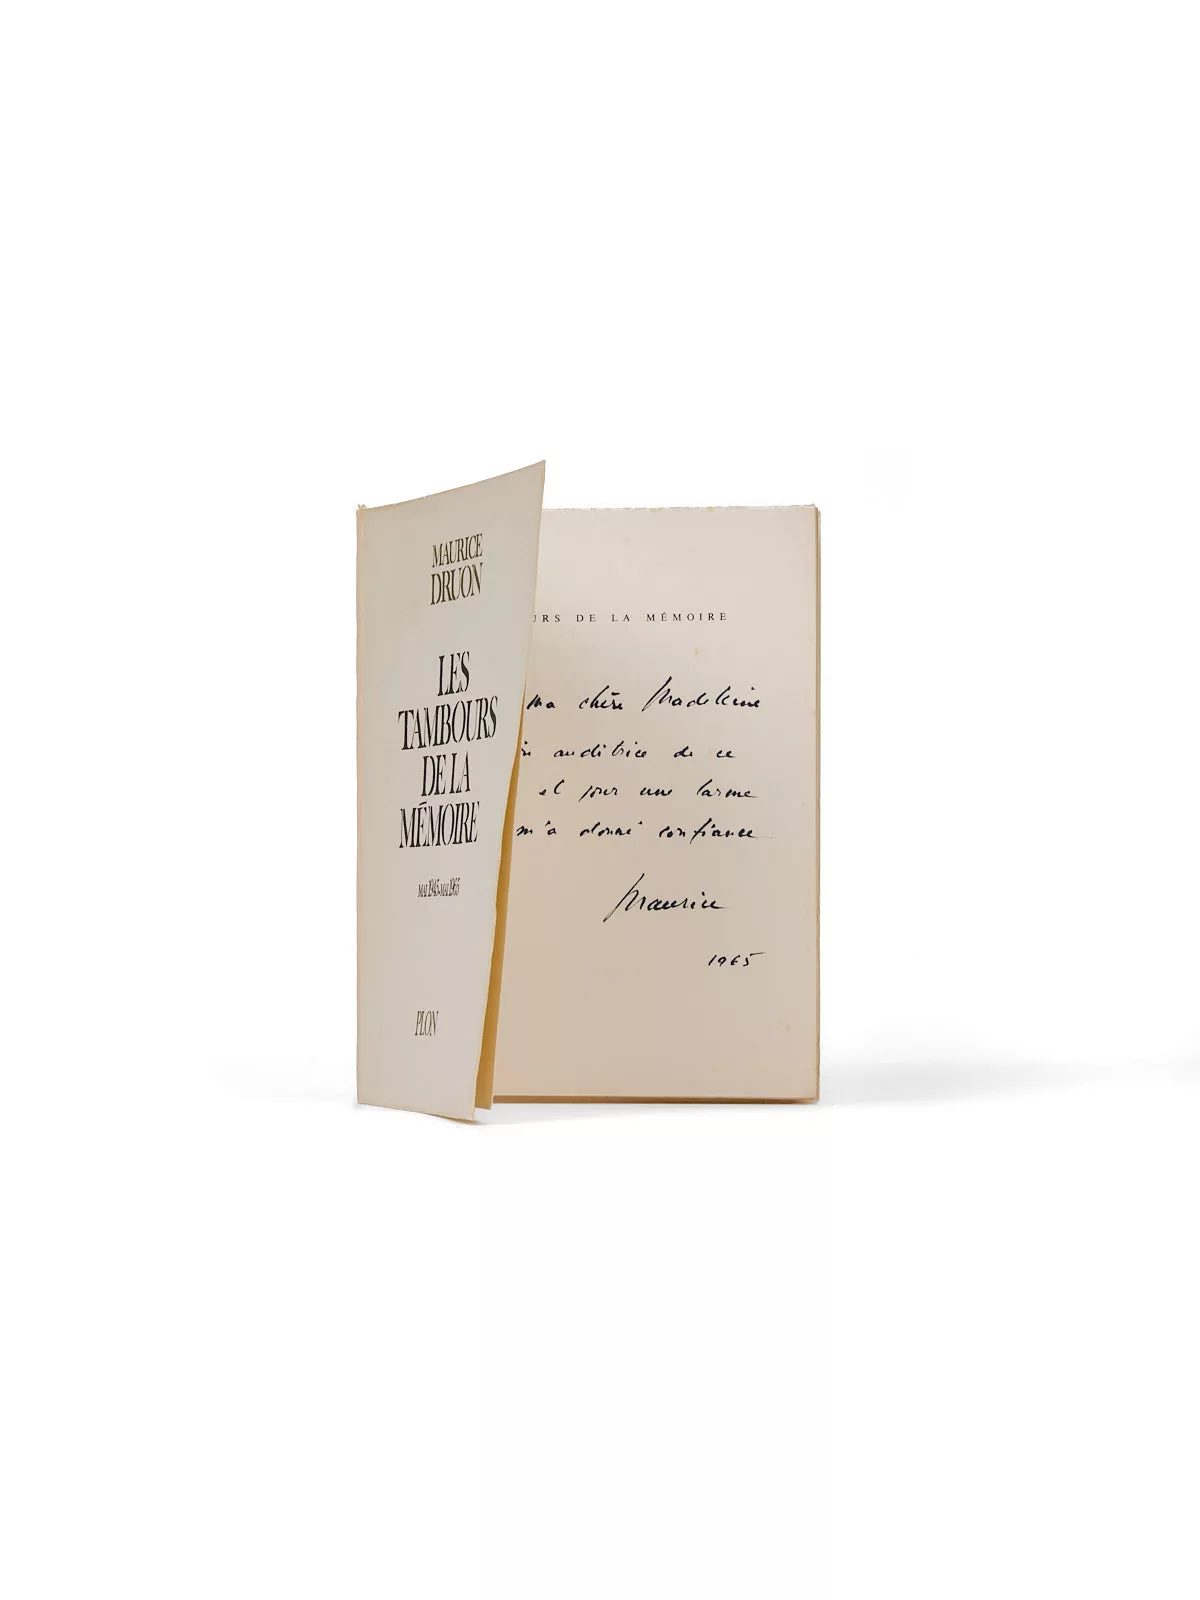 MAURICE
DRUON
LES
TAMBOURS
DE LA
MÉMOIRE
MAI 1945-MAI 1965
PLON
URS DE LA MÉMOIRE
ma chère Madeleine
auditrice de ce
et pour une larme
m'a donné confiance
Maurice
1965